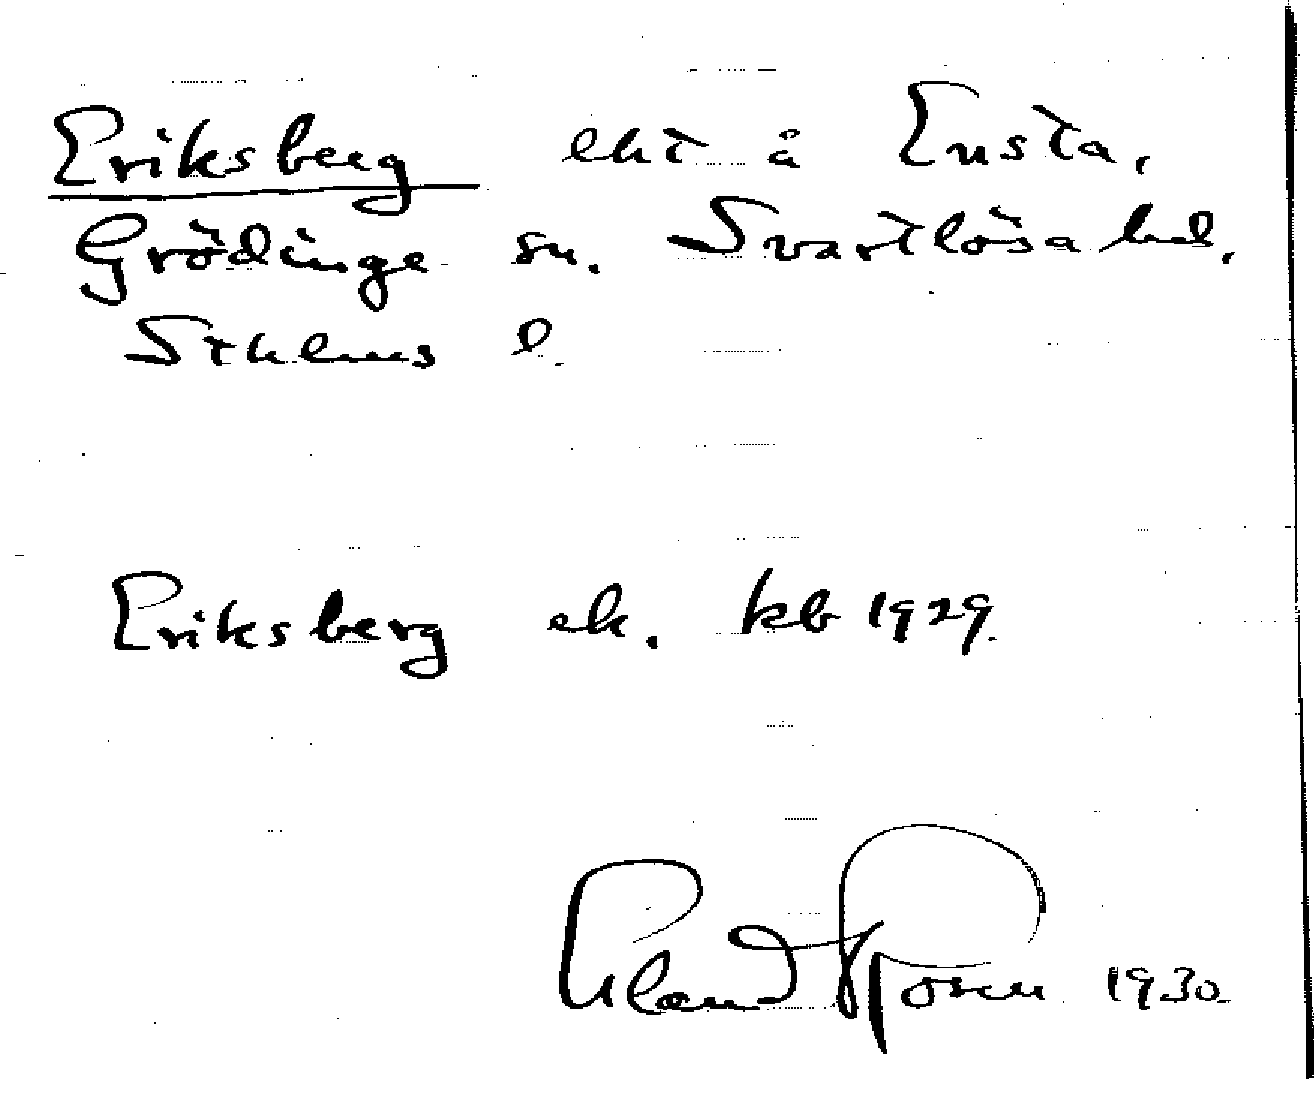 Eriksberg eht å Ensta,
Grödinge sn. Svartlösa hd,
Sthlms l.
Eriksberg eh. kb 1929.
Eland Rosen 1930.